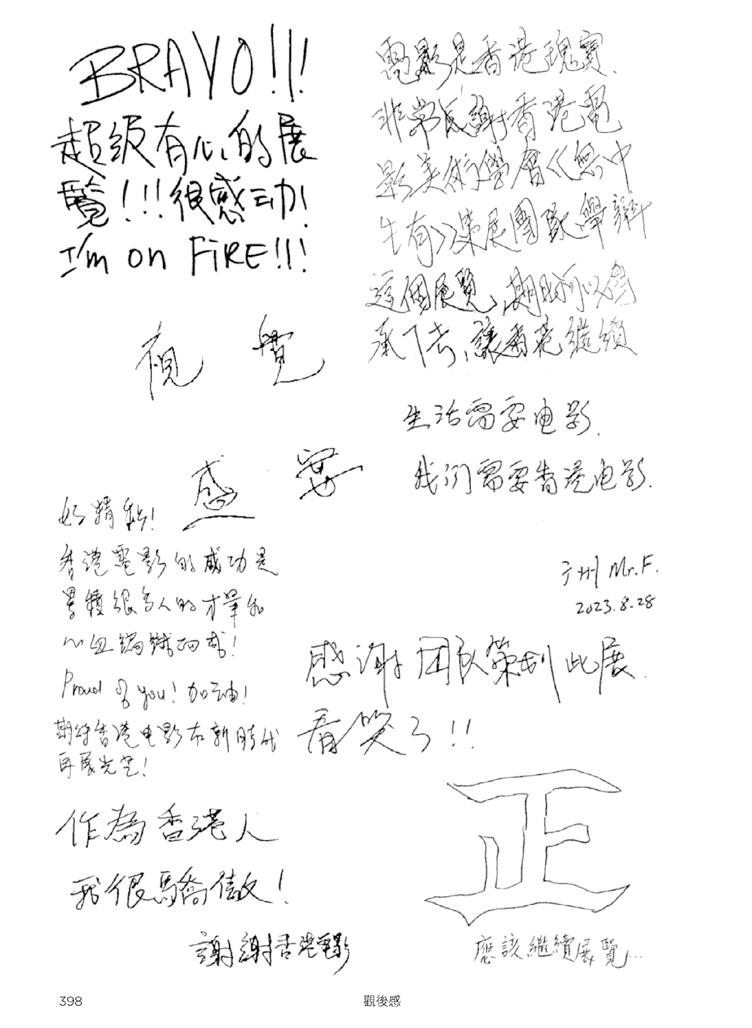 BRAVO!!!
超級有心的展
覽！！！很感动！
I'm on FiRE!!!
電影是香港瑰寶.
非常感謝香港電
影美術學會《無中
生有》策展團隊舉辦
這個展覽,期盼可以傳
承下去,讓香港繼續
視覺
盛宴
生活需要电影.
我们需要香港电影.
广州 Mr.F.
2023.8.28
好精彩!
香港電影的成功是
累積很多人的才華和
心血編織而成!
Proud of you! 加油!
期待香港电影在新時代
再展光芒!
感謝团队策划此展.
看笑了!!
作為香港人
我很驕傲!
謝謝香港電影
正
應該繼續展覽...
398
觀後感